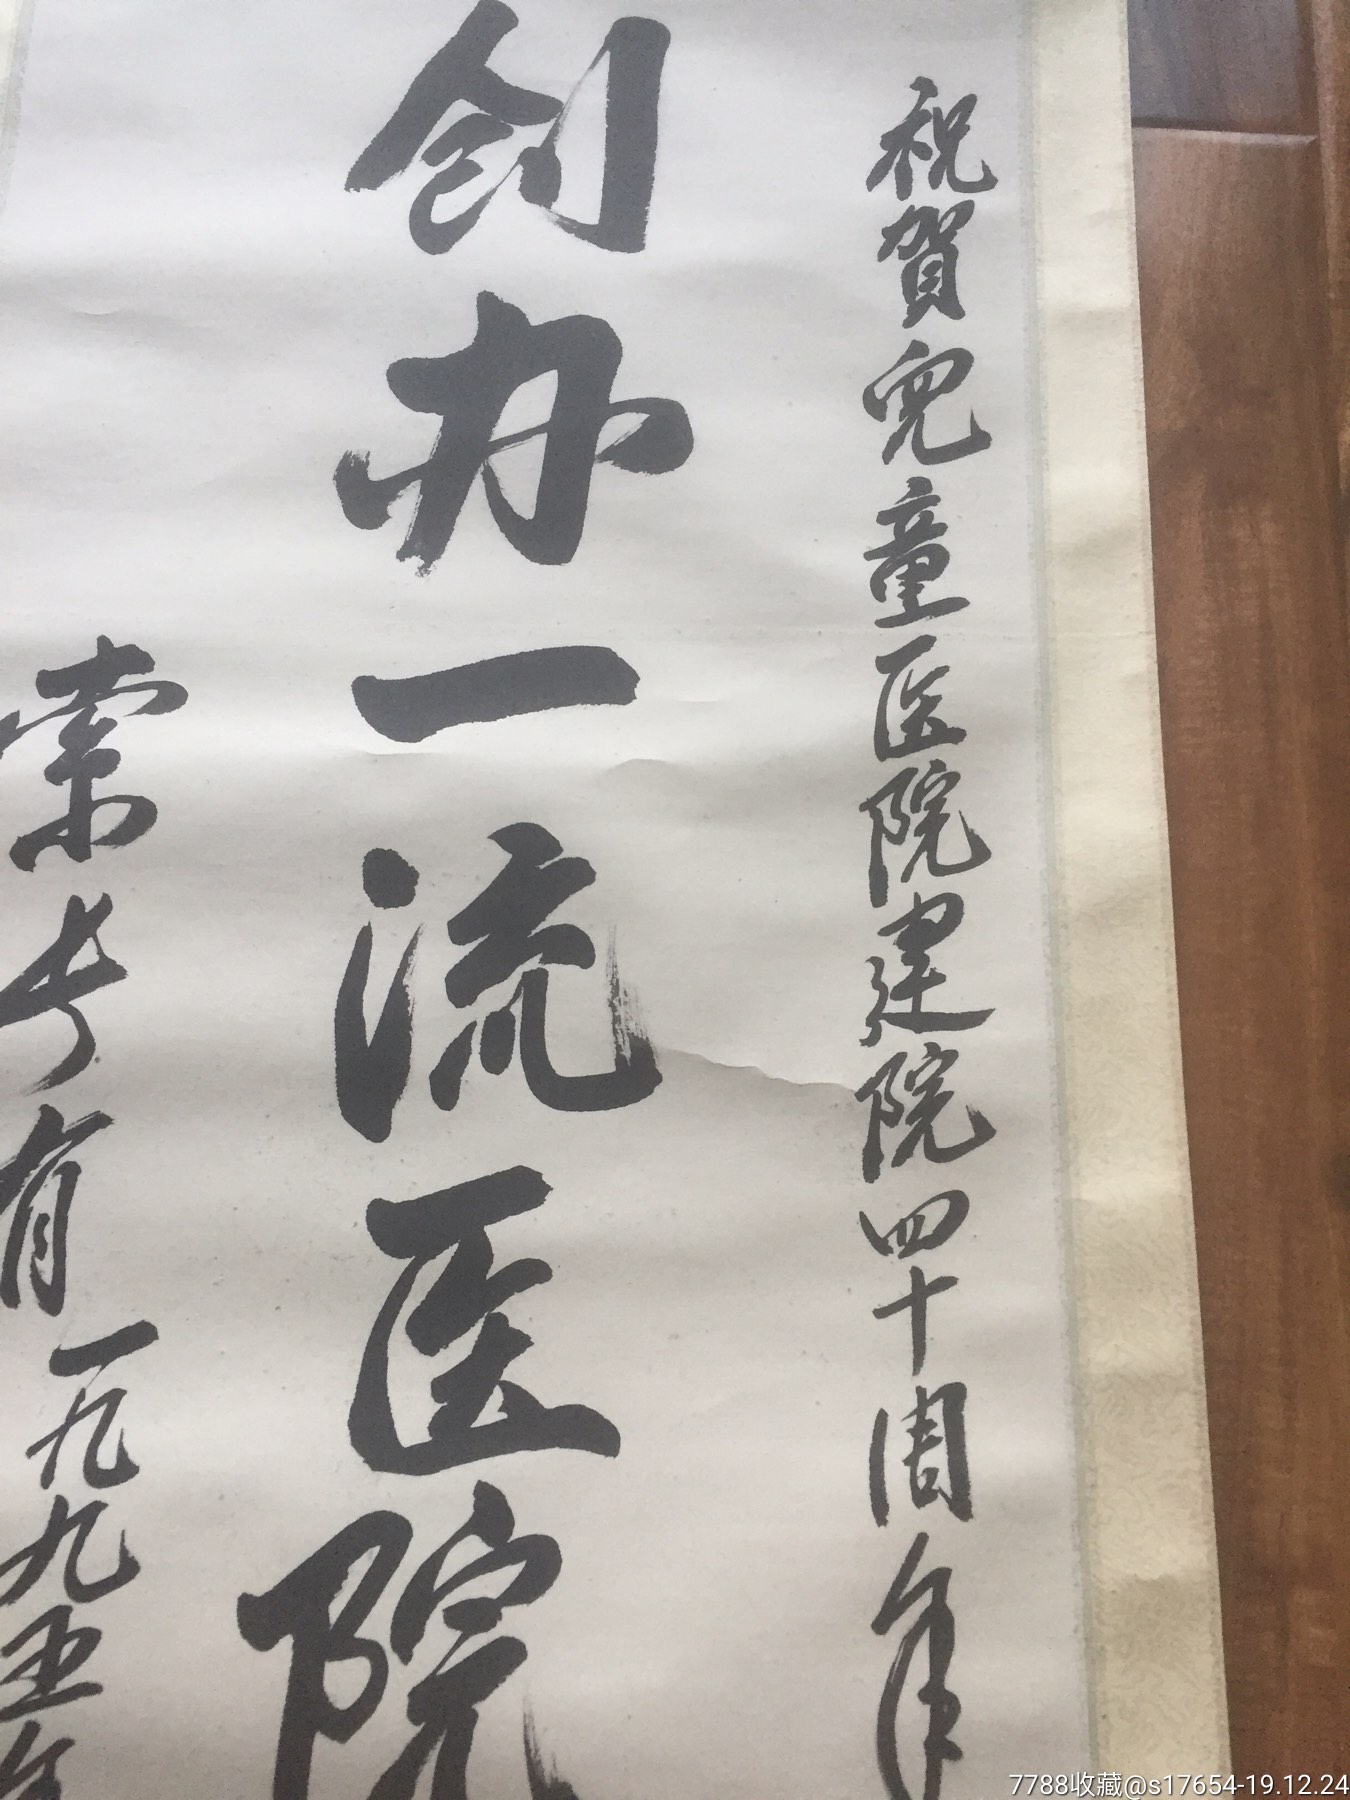 祝賀兒童医院建院四十周年
创办一流医院
索长有
一九九五年
7788收藏@s17654-19.12.24